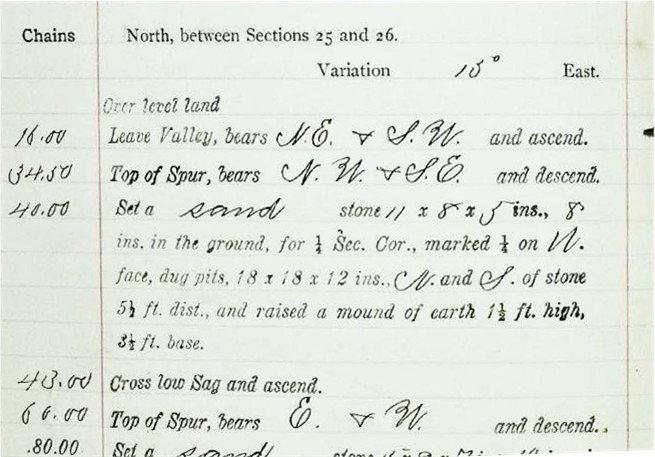 Chains North, between Sections 25 and 26.
Variation 15° East.
Over level land
16.00 Leave Valley, bears N.E. & S.W. and ascend.
34.50 Top of Spur, bears N.W. & S.E. and descend.
40.00 Set a sand stone 11 x 8 x 5 ins., 8
ins. in the ground, for ¼ Sec. Cor., marked ¼ on W.
face, dug pits, 18 x 18 x 12 ins., N. and S. of stone
5½ ft. dist., and raised a mound of earth 1½ ft. high,
3½ ft. base.
43.00 Cross low Sag and ascend.
60.00 Top of Spur, bears E. & W. and descend.
80.00 Set a sand stone